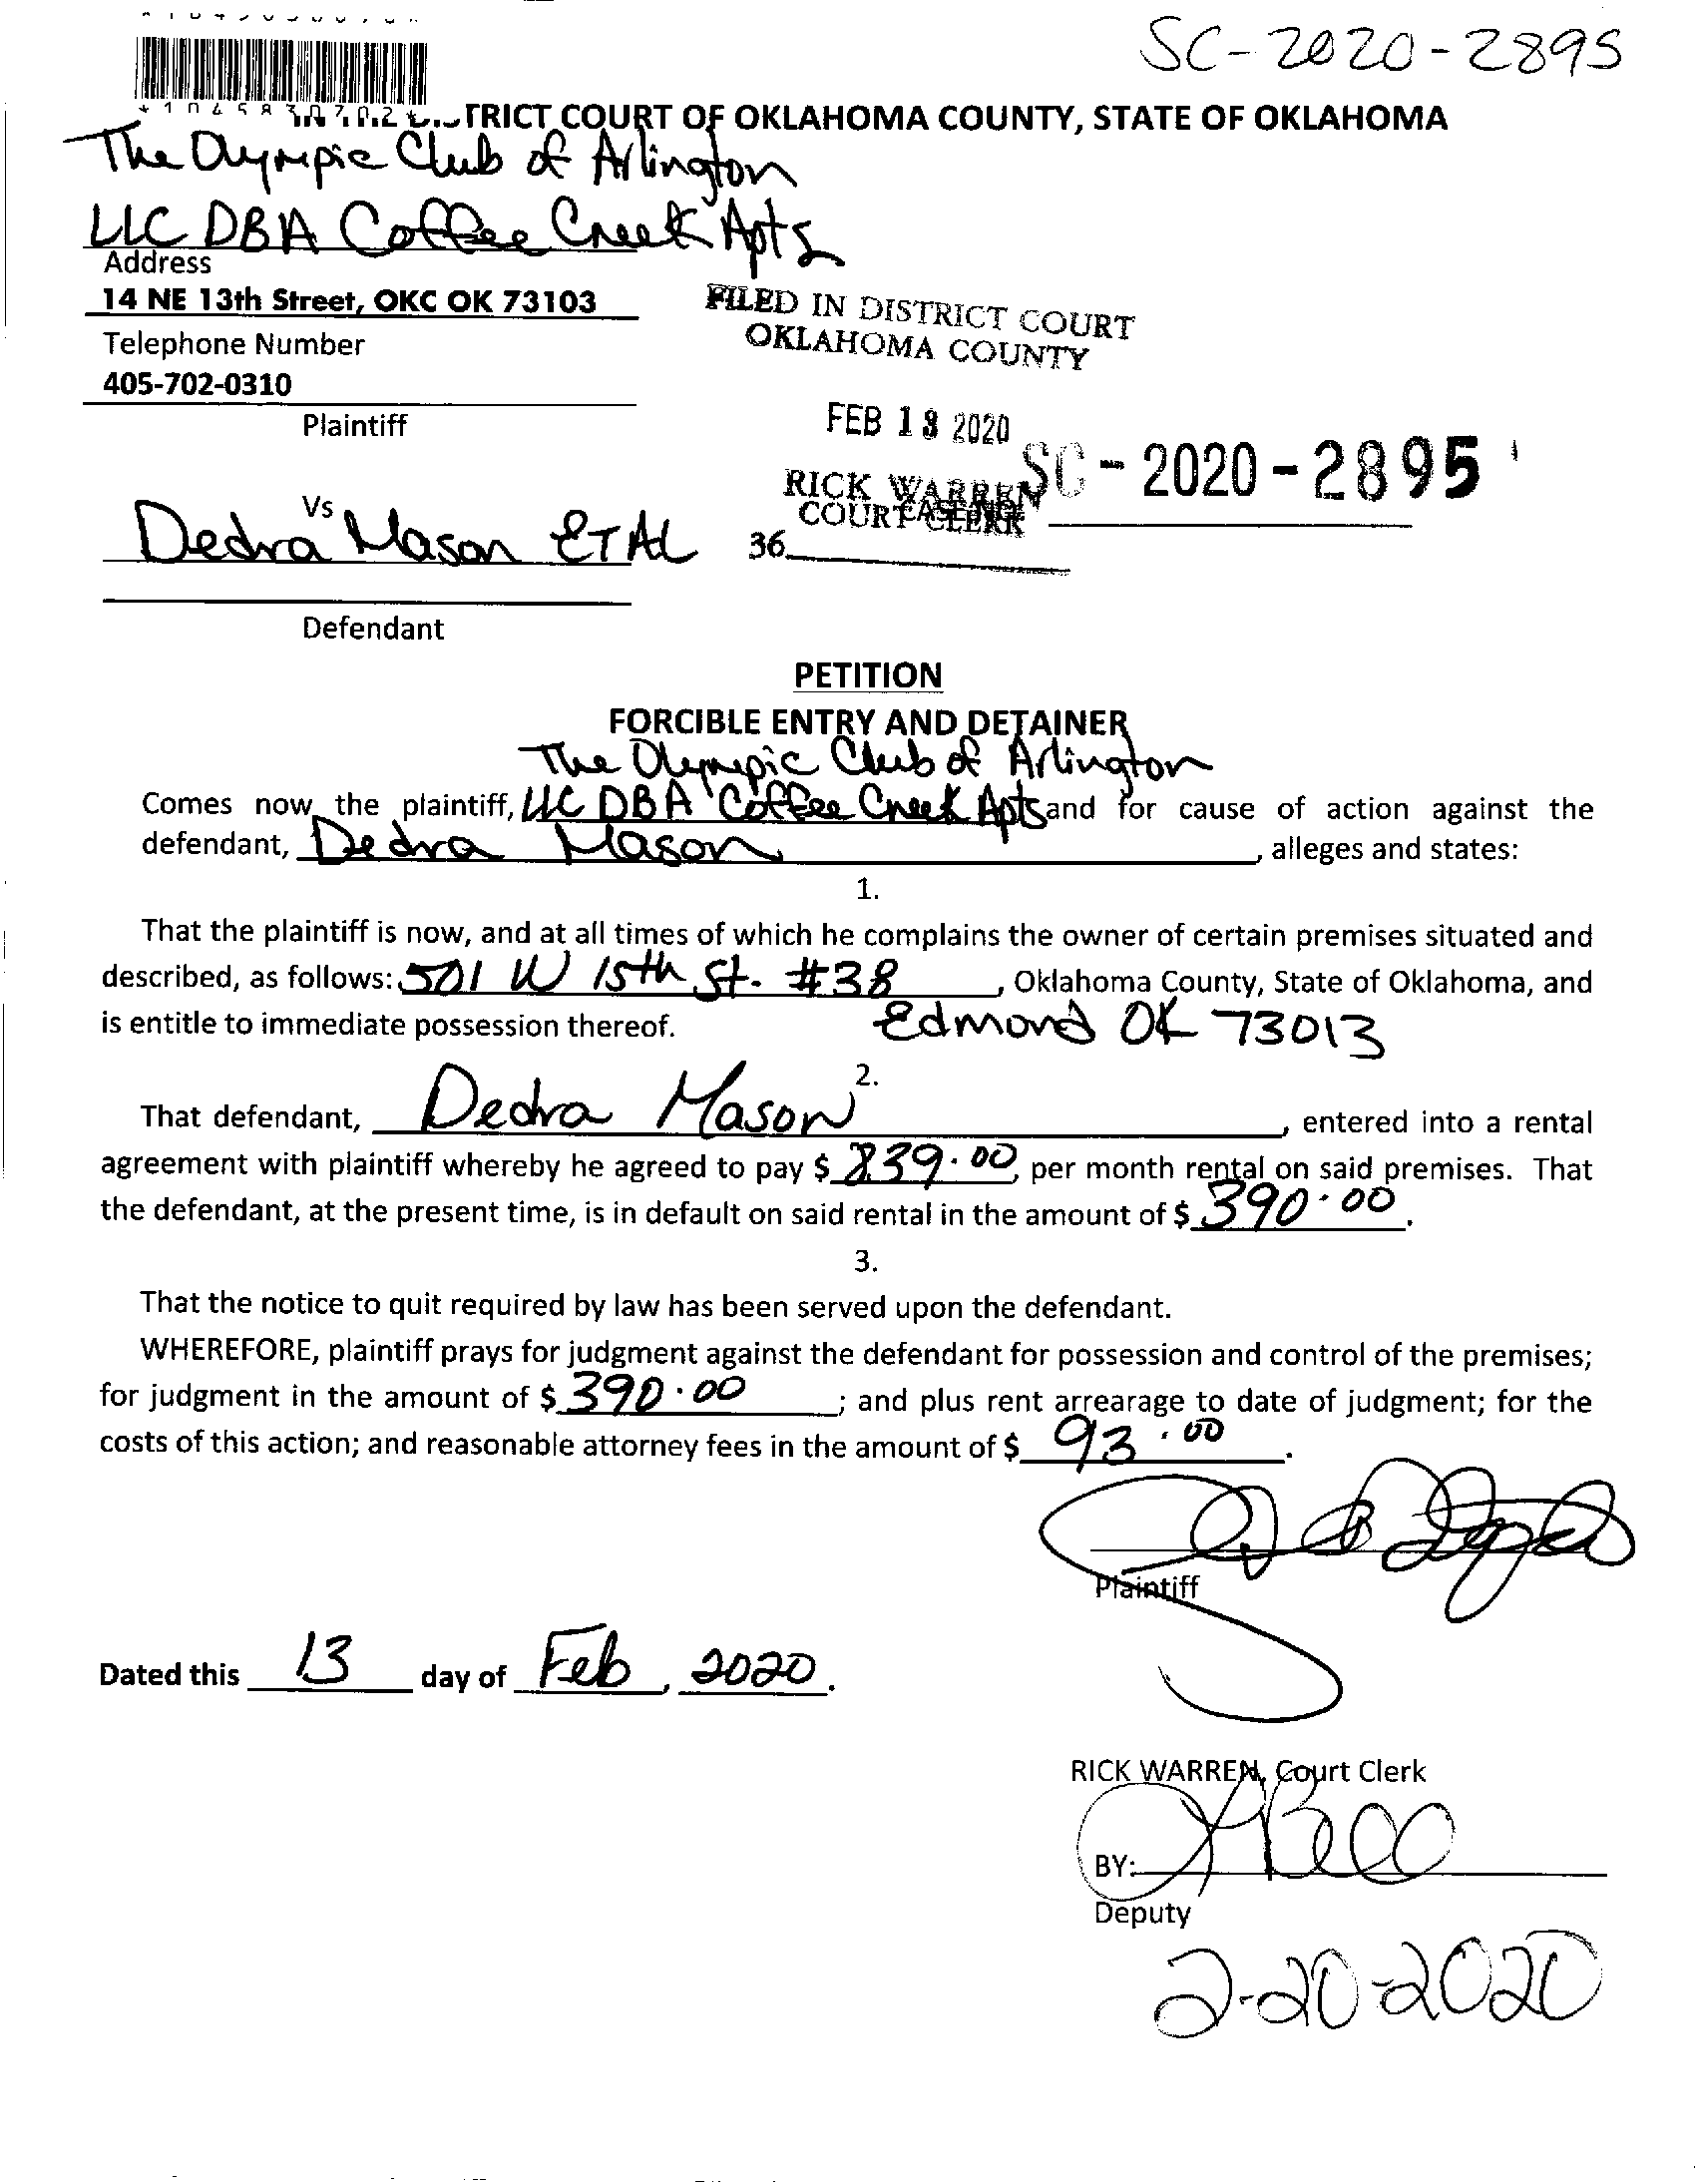 SC-2020-2895
*1045830702*
IN DISTRICT COURT OF OKLAHOMA COUNTY, STATE OF OKLAHOMA
The Olympic Club of Arlington
LLC DBA Coffee Creek Apts
Address
14 NE 13th Street, OKC OK 73103
Telephone Number
405-702-0310
Plaintiff
FILED IN DISTRICT COURT
OKLAHOMA COUNTY
FEB 13 2020
RICK WARREN
COURT CLERK
SC-2020-2895
36
Vs
Dedra Mason ET AL
Defendant
PETITION
FORCIBLE ENTRY AND DETAINER
The Olympic Club of Arlington
Comes now the plaintiff, LLC DBA Coffee Creek Apts and for cause of action against the
defendant, Dedra Mason, alleges and states:
1.
That the plaintiff is now, and at all times of which he complains the owner of certain premises situated and
described, as follows: 501 W 15th St. #38, Oklahoma County, State of Oklahoma, and
is entitle to immediate possession thereof. Edmond OK 73013
2.
That defendant, Dedra Mason, entered into a rental
agreement with plaintiff whereby he agreed to pay $ 839.00, per month rental on said premises. That
the defendant, at the present time, is in default on said rental in the amount of $ 390.00.
3.
That the notice to quit required by law has been served upon the defendant.
WHEREFORE, plaintiff prays for judgment against the defendant for possession and control of the premises;
for judgment in the amount of $ 390.00; and plus rent arrearage to date of judgment; for the
costs of this action; and reasonable attorney fees in the amount of $ 93.00.
Plaintiff
Dated this 13 day of Feb, 2020.
RICK WARREN, Court Clerk
BY:
Deputy
2-20-2020